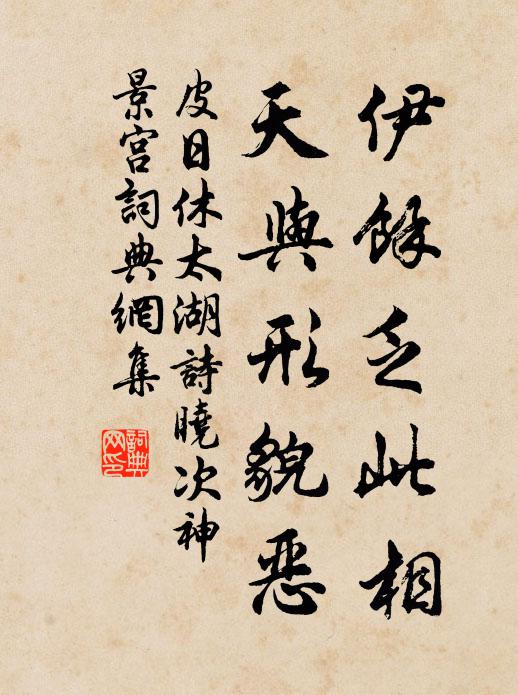 伊餘乏此相
天與形貌惡
皮日休太湖詩曉次神
景宮詞典網集
詞典網印